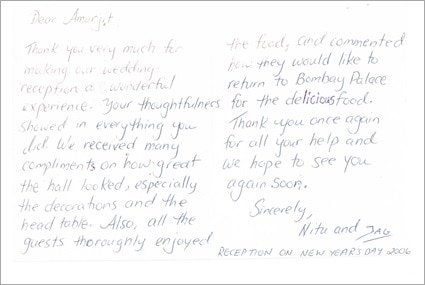 Dear Amarjit,
Thank you very much for
making our wedding
reception a wonderful
experience. Your thoughtfulness
showed in everything you
did. We received many
compliments on how great
the hall looked, especially
the decorations and the
head table. Also, all the
guests thoroughly enjoyed
the food, and commented
how they would like to
return to Bombay Palace
for the delicious food.
Thank you once again
for all your help and
we hope to see you
again soon.
Sincerely,
Nitu and JAG
RECEPTION ON NEW YEAR'S DAY 2006